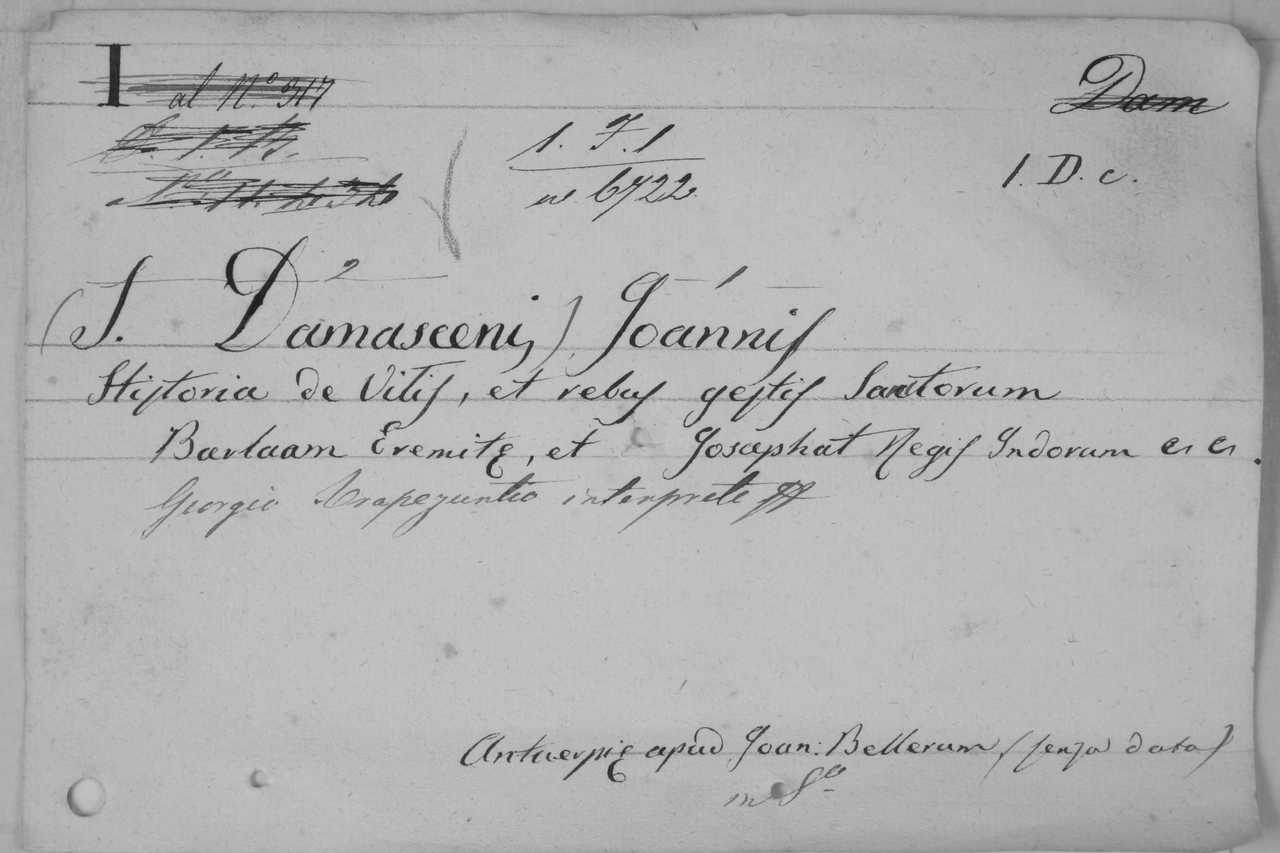 I al N.º 317
Dam
1. F. 1
1. D. c.
6722
2 1
(S. Damasceni) Joannis
Historia de Vitis, et rebus gestis Sanctorum
Barlaam Eremitę, et Josaphat Regis Indorum &c &c.
Georgio Trapezuntio interprete
Antwerpię apud Joan: Bellerum (senza data)
in 8º